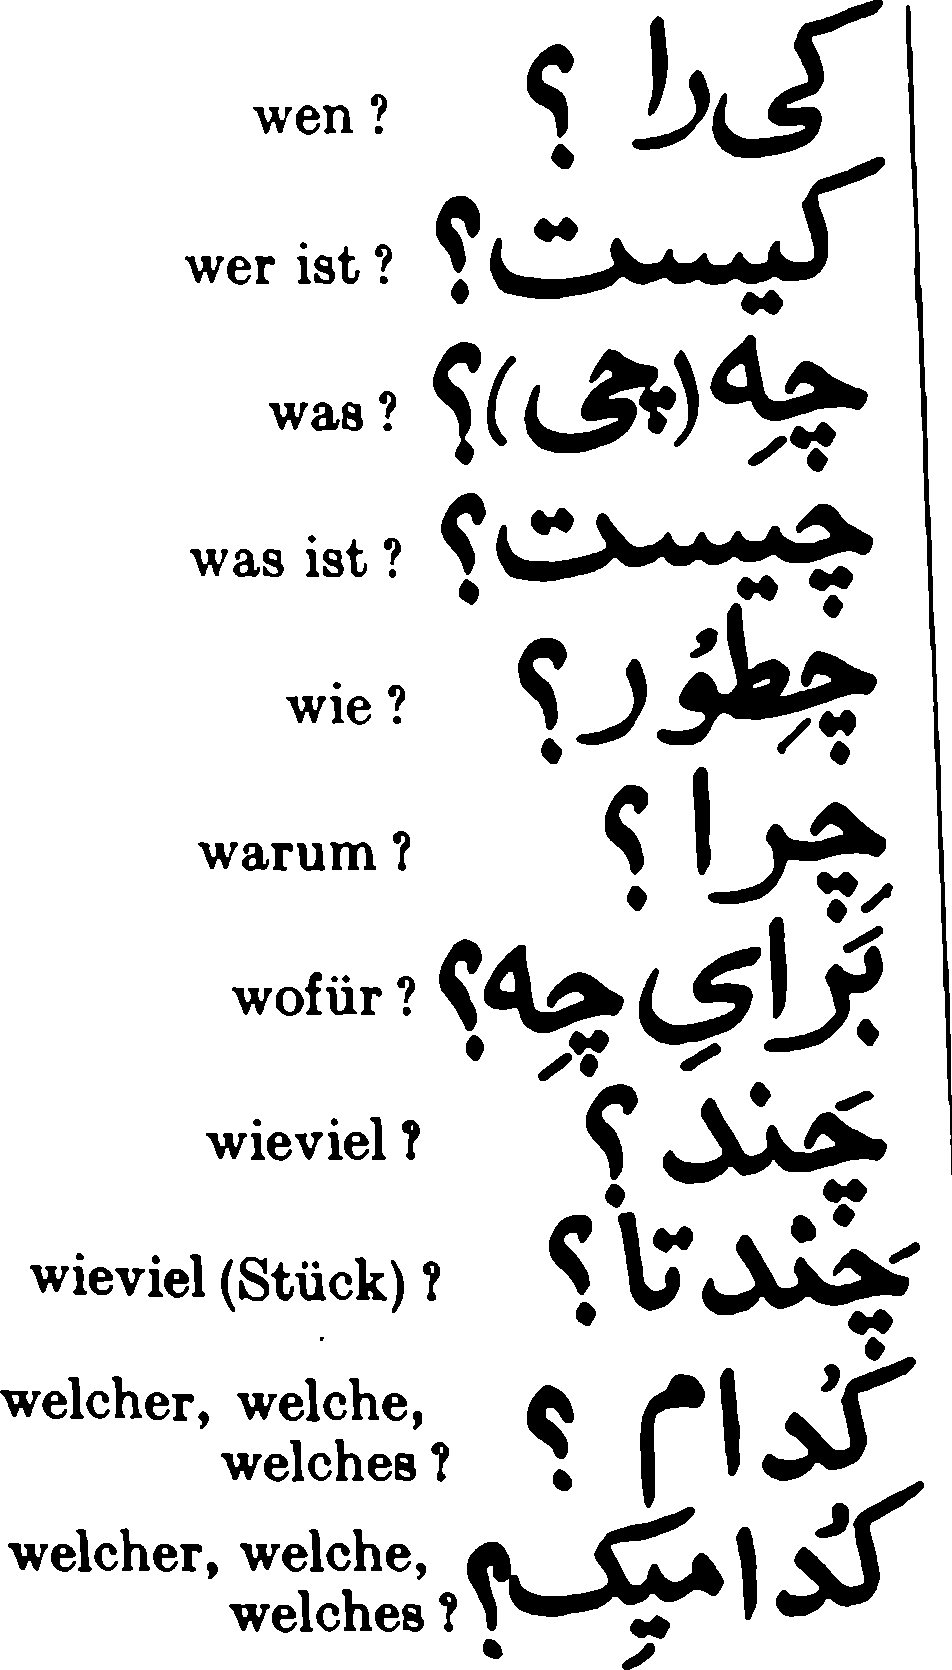 wen ? کی را ؟
wer ist ? کیست؟
was ? چِه (چی)؟
was ist ? چیست؟
wie ? چِطوُر؟
warum ? چرا ؟
wofür ? بَرایِ چِه؟
wieviel ? چَند ؟
wieviel (Stück) ? چَند تا؟
welcher, welche, کُدام ؟
welches ?
welcher, welche, کُدامیِک؟
welches ?